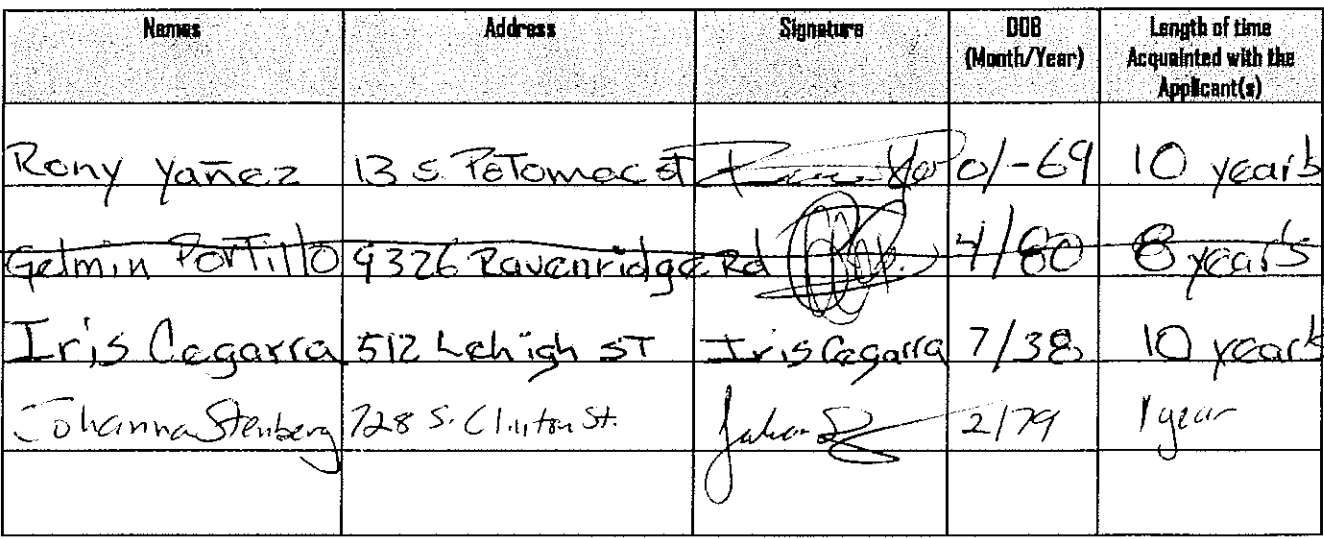 Names Address Signature DOB (Month/Year) Length of time Acquainted with the Applicant(s)
Rony Yañez 13 S. Potomac st 01-69 10 years
Gelmin Portillo 9326 Ravenridge Rd 4/80 8 years
Iris Cegarra 512 Lehigh ST Iris Cegarra 7/38 10 years
Johanna Stenberg 728 S. Clinton St. 2/79 1 year